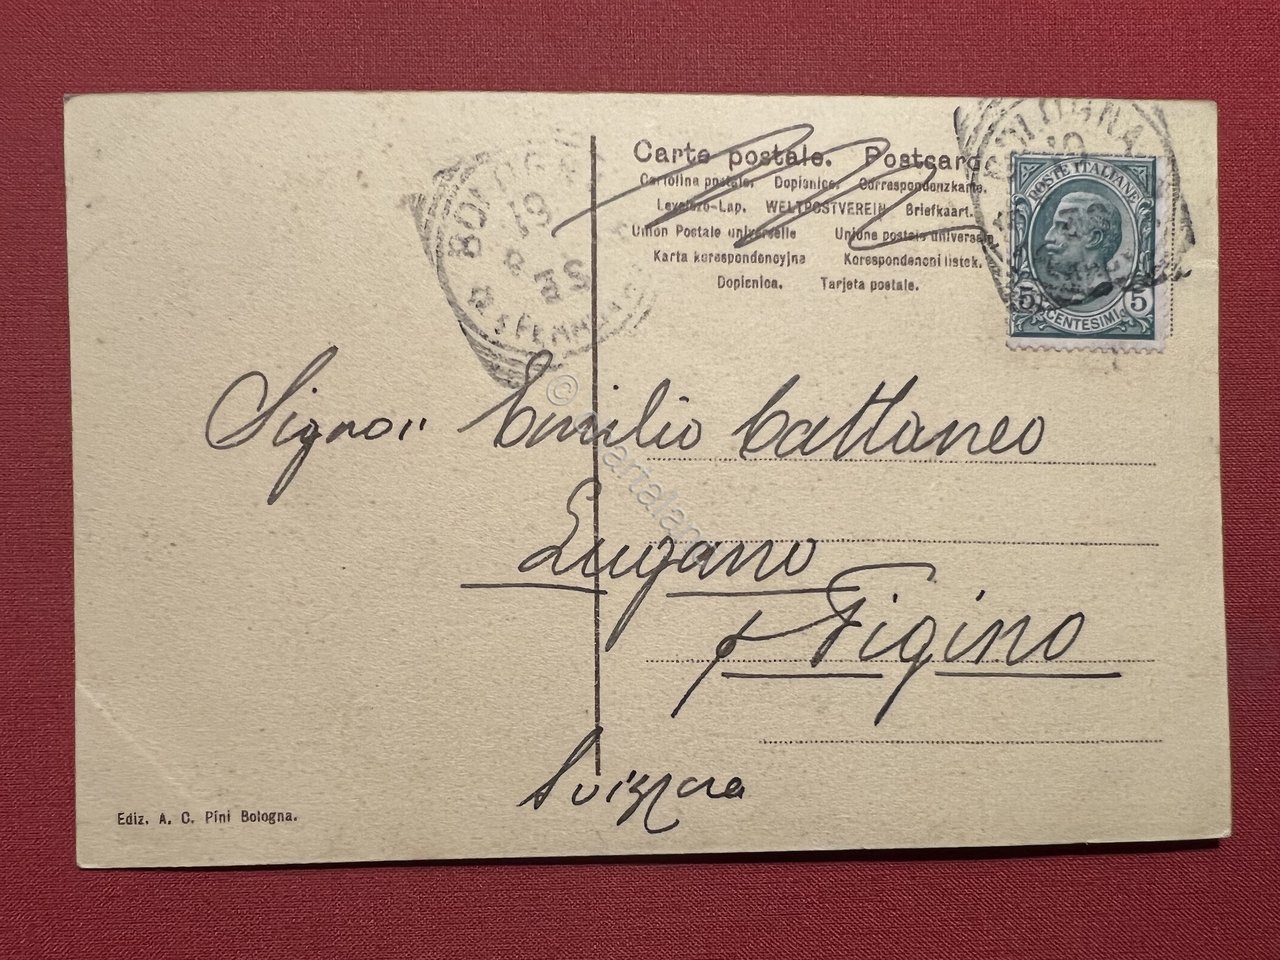 Carte postale. Postcard
Cartolina postale. Dopisnice. Correspondenzkarte.
Levelezo-Lap. WELTPOSTVEREIN Briefkaart.
Union Postale universelle Unione postale universele
Karta korespondencyjna Korespondencni listek.
Dopisnica. Tarjeta postale.
BOLOGNA
BOLOGNA
19
POSTE ITALIANE
5 CENTESIMI 5
Signor Emilio Cattaneo
Lugano
p Figino
Svizzera
Ediz. A. C. Pini Bologna.